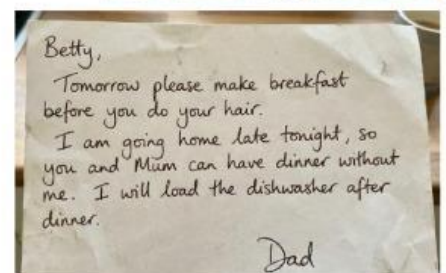 Betty,
Tomorrow please make breakfast
before you do your hair.
I am going home late tonight, so
you and Mum can have dinner without
me. I will load the dishwasher after
dinner.
Dad